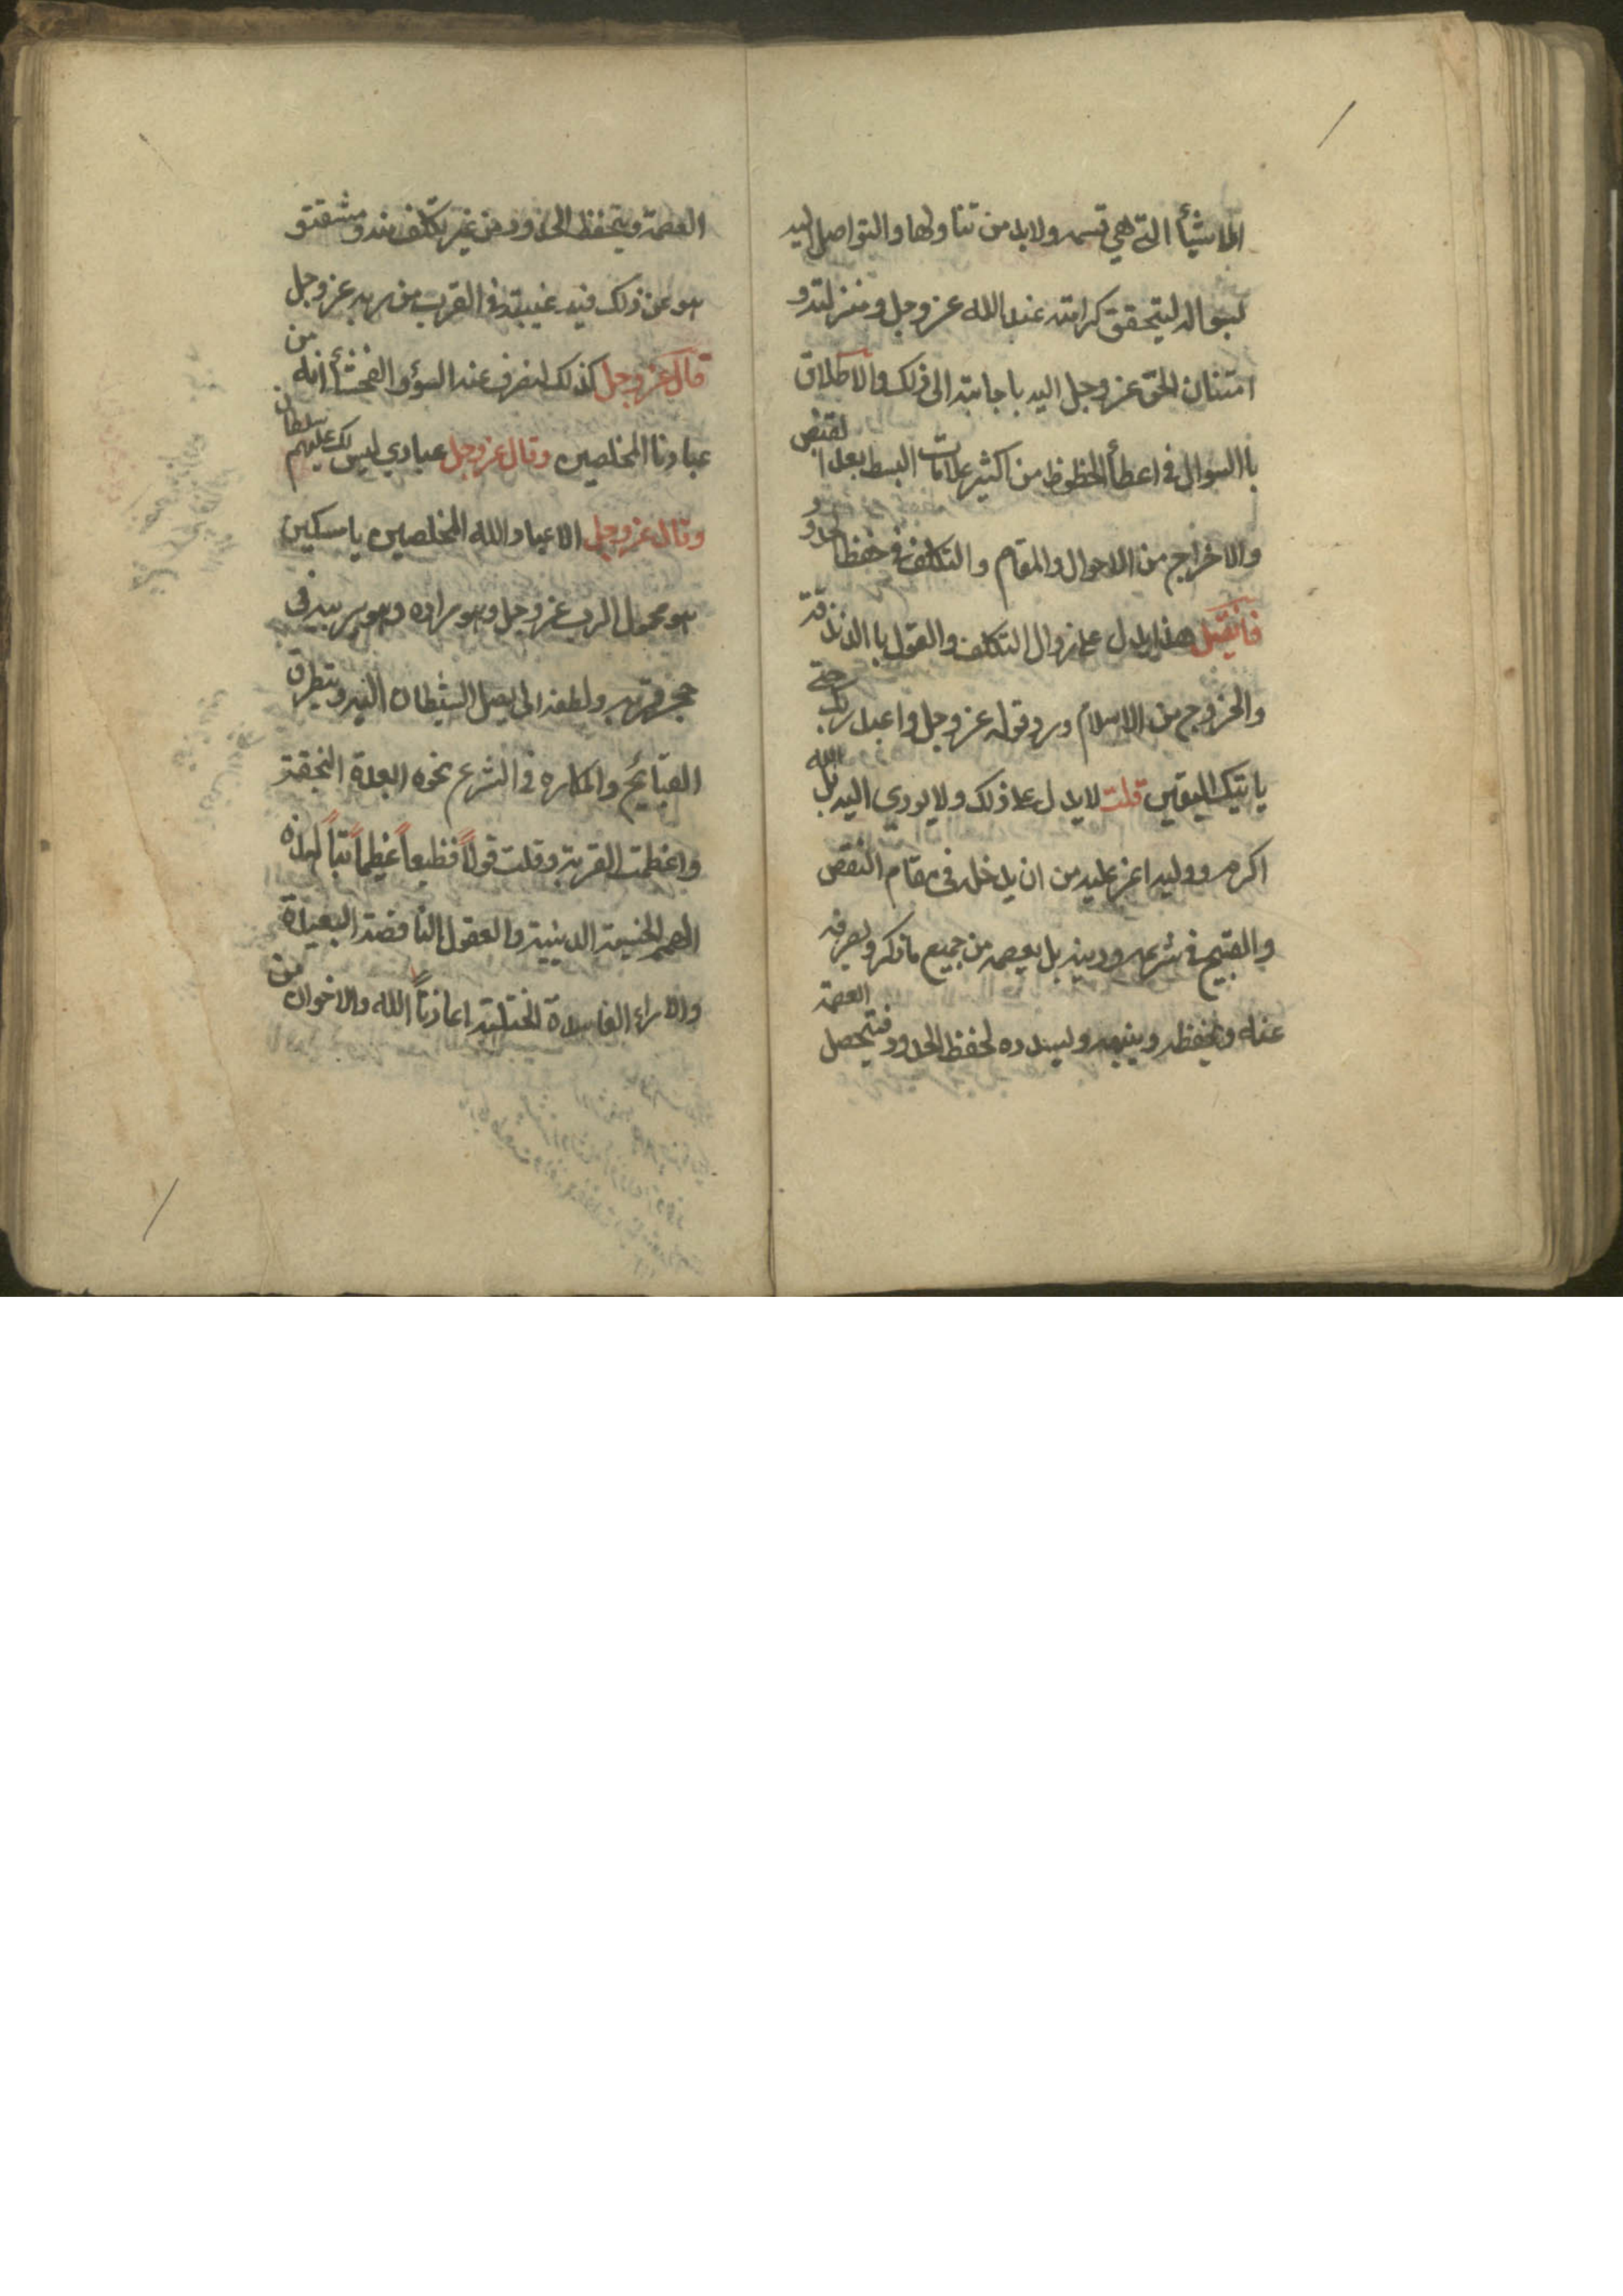 الاشيأ التي هي قسمه ولابد من تناولها والتواصل اليه
بسواله ليتحقق كرامته عند الله عز وجل ومنزلته و
امتنان الحق عز وجل اليه باجابته الى ذلك والاطلاق
باالسوال في اعطأ الحظوظ من اكثير علامات البسط بعد القبض
والاخراج من الاحوال والمقام والتكلف في حفظ الحدود
فانقيل هذا يدل على زوال التكلف والقول باالزندقة
والخروج من الاسلام ورد قوله عز وجل واعبد ربك حتى
ياتيك اليقين قلت لا يدل على ذلك ولا يودي اليه بل الله
اكرم ووليه اعز عليه من ان يدخله في مقام النقص
والقبيح في شرعه ودينه بل يعصمه من جميع ما ذكر ويصرفه
عنه ويحفظه وينبهه ويسدده لحفظ الحدود فتحصل العصمة
العصمة ويتحفظ الحدود من غير تكلف منه ومشقة و
هو عن ذلك فيه غيبة في القرب من ربه عز وجل
قال عز وجل كذلك لنصرف عنه السؤ والفحشأ انه من
عبادنا المخلصين وقال عز وجل عبادي ليس لك عليهم سلطان
وقال عز وجل الا عباد الله المخلصين يا مسكين
هو محمول الرب عز وجل وهو مراده وهو يربيه في
حجر قربه ولطفه انى يصل الشيطان اليه ويتطرق
القبائح والمكاره في الشرع نحوه ابعدة النجقة
واعظمت القربة وقلت قولاً فظيعاً عظيماً تباً لهذه
الهمم الخسيسة الدينية والعقول الناقصة البعيدة
والاراء الفاسدة المختلية اعاذنا الله والاخوان من